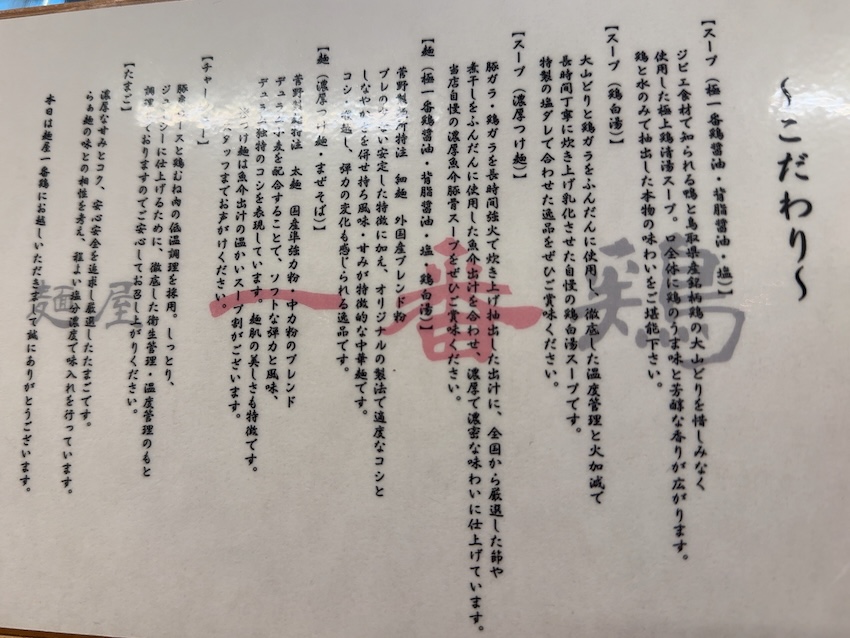 ～こだわり～
【スープ（極一番鶏醤油・背脂醤油・塩）】
ジビエ食材で知られる鴨と鳥取県産銘柄鶏の大山どりを惜しみなく
使用した極上鶏清湯スープ。口全体に鶏のうま味と芳醇な香りが広がります。
鶏と水のみで抽出した本物の味わいをご堪能下さい。
【スープ（鶏白湯）】
大山どりと鶏ガラをふんだんに使用し、徹底した温度管理と火加減で
長時間丁寧に炊き上げ乳化させた自慢の鶏白湯スープです。
特製の塩ダレで合わせた逸品をぜひご賞味ください。
【スープ（濃厚つけ麺）】
豚ガラ・鶏ガラを長時間強火で炊き上げ抽出した出汁に、全国から厳選した節や
煮干しをふんだんに使用した魚介出汁を合わせ、濃厚で濃密な味わいに仕上げています。
当店自慢の濃厚魚介豚骨スープをぜひご賞味ください。
【麺（極一番鶏醤油・背脂醤油・塩・鶏白湯）】
菅野製麺所特注 細麺 外国産ブレンド粉
ブレのない安定した特徴に加え、オリジナルの製法で適度なコシと
しなやかさを併せ持ち風味・甘みが特徴的な中華麺です。
コシ・喉越し、弾力の変化も感じられる逸品です。
【麺（濃厚つけ麺・まぜそば）】
菅野製麺所特注 太麺 国産準強力粉・中力粉のブレンド
デュラム小麦を配合することで、ソフトな弾力と風味、
デュラム独特のコシを表現しています。麺肌の美しさも特徴です。
つけ麺は魚介出汁の温かいスープ割がございます。
スタッフまでお声がけください。
【チャーシュー】
豚肩ロースと鶏むね肉の低温調理を採用。しっとり、
ジューシーに仕上げるために、徹底した衛生管理・温度管理のもと
調理しておりますのでご安心してお召し上がりください。
【たまご】
濃厚な甘みとコク、安心安全を追求し厳選したたまごです。
らぁ麺の味との相性を考え、程よい塩分濃度で味入れを行っています。
本日は麺屋一番鶏にお越しいただきまして誠にありがとうございます。
麺屋 一番鶏